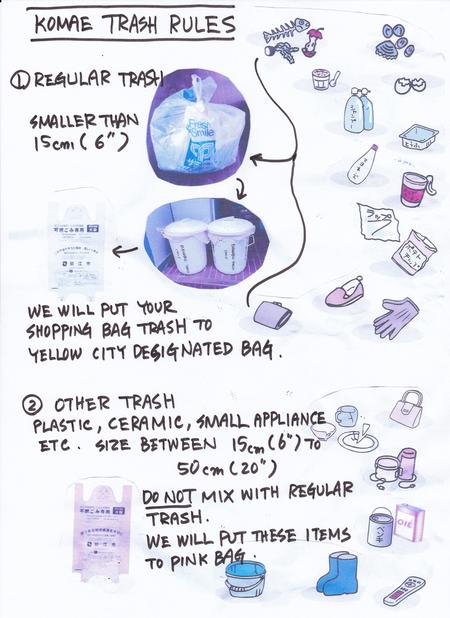 KOMAE TRASH RULES
① REGULAR TRASH
SMALLER THAN
15cm (6")
Fresh
Smile
シャンプー
とうふ
ラップ
ポテト
チップ
可燃ごみ専用
狛江市
WE WILL PUT YOUR
SHOPPING BAG TRASH TO
YELLOW CITY DESIGNATED BAG.
② OTHER TRASH
PLASTIC, CERAMIC, SMALL APPLIANCE
ETC. SIZE BETWEEN 15cm (6") TO
50cm (20")
DO NOT MIX WITH REGULAR
TRASH.
WE WILL PUT THESE ITEMS
TO PINK BAG.
ペンキ
OIL